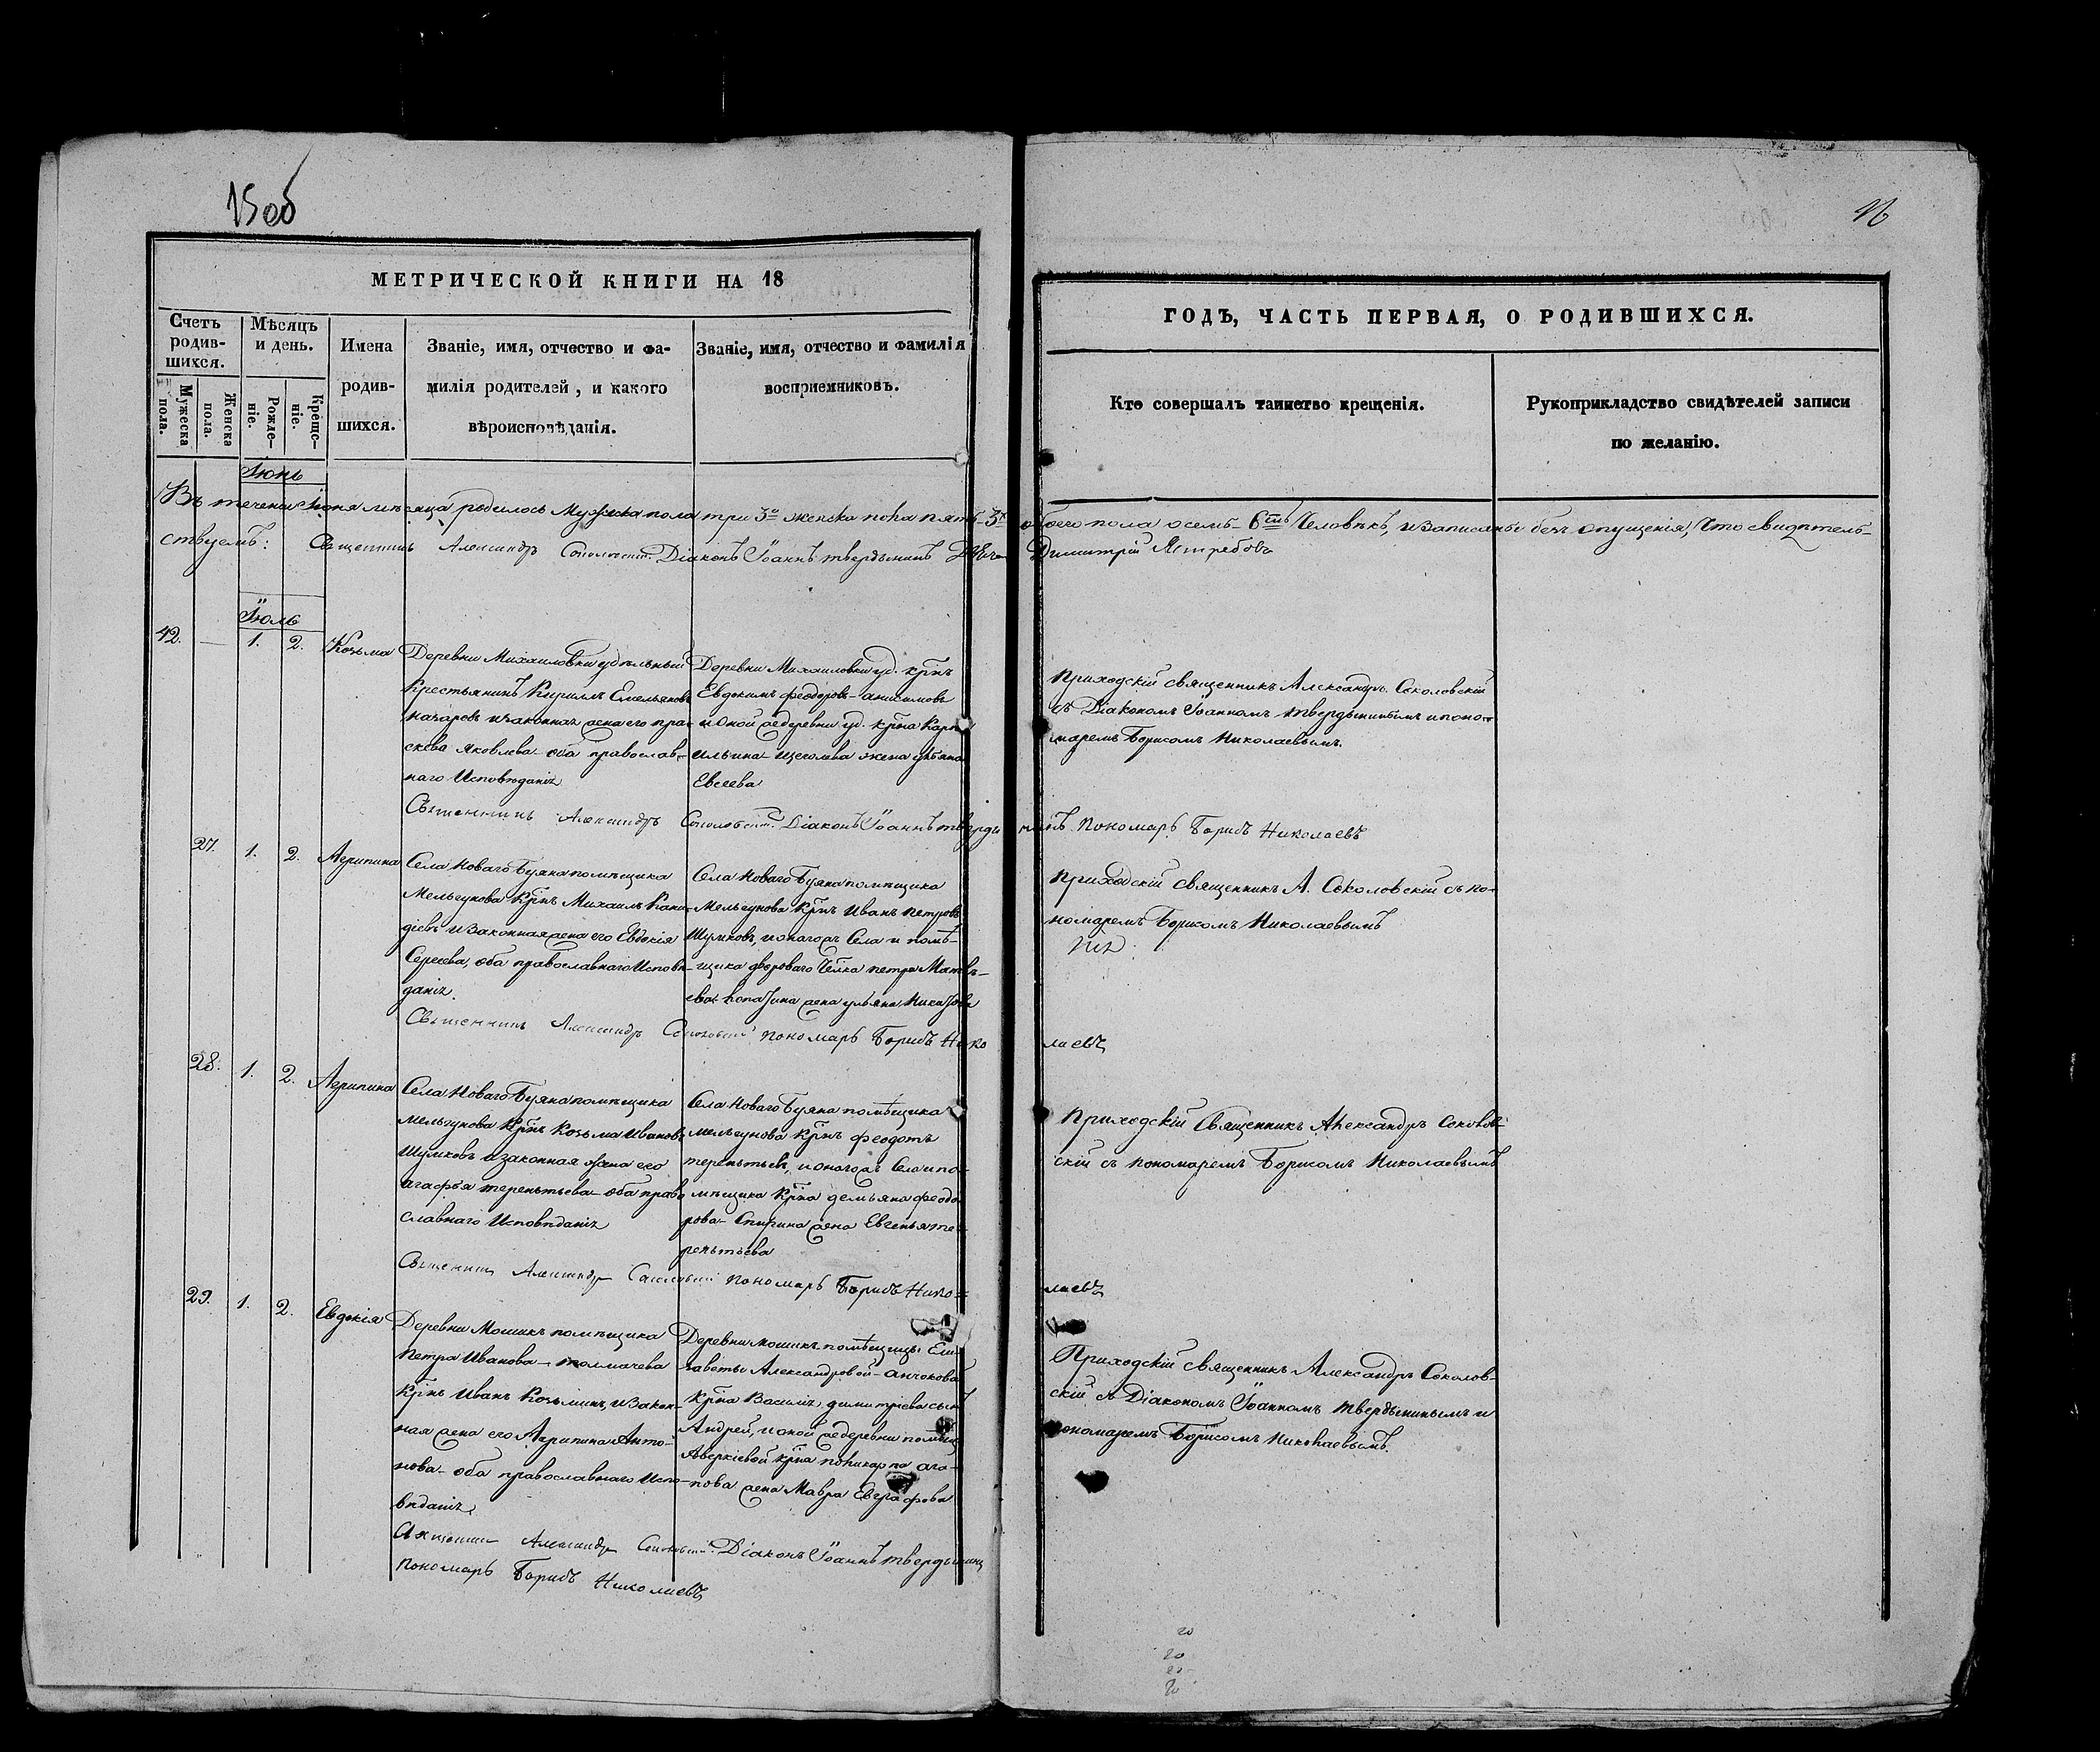 15об
16
МЕТРИЧЕСКОЙ КНИГИ НА 18
ГОДЪ, ЧАСТЬ ПЕРВАЯ, О РОДИВШИХСЯ.
Счетъ родив-шихся.
Мужеска пола.
Женска пола.
Мѣсяцъ и день.
Рожде-ніе.
Креще-ніе.
Имена родив-шихся.
Званіе, имя, отчество и фа-
милія родителей, и какого
вѣроисповѣданія.
Званіе, имя, отчество и фамилія
воспріемниковъ.
Кто совершалъ таинство крещенія.
Рукоприкладство свидѣтелей записи
по желанію.
Іюнь
Въ теченіи Іюня мѣсяца родилось Мужска пола три 3 женска пола пять обоего пола осемь Человѣкъ, и записаны безъ опущенія, Что свидѣтель-
ствуемъ: Священникъ Александръ Соколовскій Діаконъ Іоаннъ Твердынинъ Димитрій Ястребовъ
Іюль
42. — 1. 2. Козьма
Деревни Михаиловки удѣльный
Крестьянинъ Кирилъ Емельяновъ
Назаровъ и законная жена его Пра-
скева Яковлева оба православ-
наго Исповѣданія
Деревни Михаиловки уд. крнъ
Евдокимъ Феодоровъ Анисимовъ
и оной же деревни уд. крна Карпа
Ильина Щеголева жена Ульяна
Евсеева
Приходскій священникъ Александръ Соколовскій
съ Діакономъ Іоанномъ Твердынинымъ и поно-
маремъ Борисомъ Николаевымъ.
Священникъ Александръ Соколовскій Діаконъ Іоаннъ Твердынинъ Пономарь Борисъ Николаевъ
27. 1. 2. Агрипина
Села Новаго Буяна помѣщика
Мельгунова Крнъ Михаилъ
и законная жена его Евдокія
Сергеева, оба православнаго Исповѣ-
данія.
Села Новаго Буяна помѣщика
Мельгунова Крнъ Иванъ Петровъ
Шумковъ, и онаго ж Села и помѣ-
щика двороваго Челка Петра Матвѣ-
ева жена Ульяна
Приходскій священникъ А. Соколовскій съ по-
номаремъ Борисомъ Николаевымъ
Священникъ Александръ Соколовскій пономарь Борисъ Нико
лаевъ
28. 1. 2. Агрипина
Села Новаго Буяна помѣщика
Мельгунова Крнъ Козьма Ивановъ
Шумковъ и законная жена его
Агафья Терентьева оба право
славнаго Исповѣданія
Села Новаго Буяна помѣщика
Мельгунова Крнъ Феодотъ
Терентьевъ, и онаго ж Села и по-
мѣщика Крна Демьяна Феодо-
рова Спирина жена Евгенья Те-
рентьева
Приходскій Священникъ Александръ Соколов-
скій съ пономаремъ Борисомъ Николаевымъ
Священникъ Александръ Соколовскій пономарь Борисъ Нико-
лаевъ
29. 1. 2. Евдокія
Деревни Мошикъ помѣщика
Петра Иванова Толмачева
Крнъ Иванъ Козьминъ, и Закон-
ная жена его Агрипина Анто-
нова оба православнаго Испо-
вѣданія
Деревни Мошикъ помѣщицы Ели-
заветы Александровой
Крна Василія Димитріева сынъ
Андрей, и оной же деревни помѣщ
Аверкіевой крна Поликарпа Ага-
пова жена Мавра Евграфова
Приходскій священникъ Александръ Соколов-
скій съ Діакономъ Іоанномъ Твердынинымъ и
пономаремъ Борисомъ Николаевымъ.
Священникъ Александръ Соколовскій Діаконъ Іоаннъ Твердынинъ
пономарь Борисъ Николаевъ
20
20
20
20